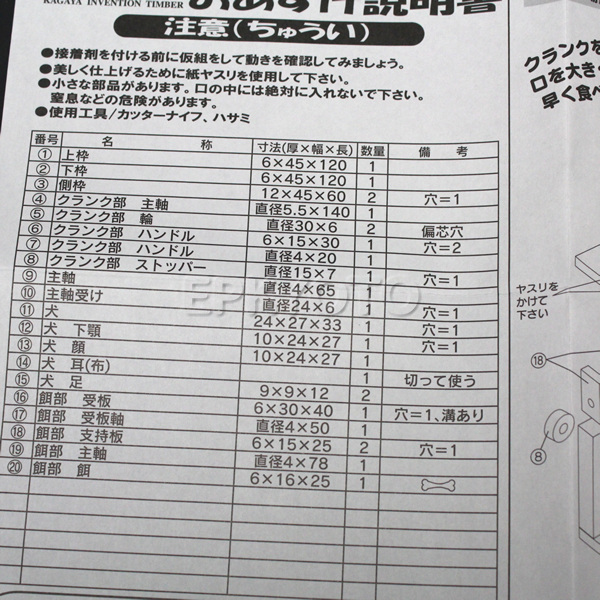 KAGAYA INVENTION TIMBER
説明書
注意(ちゅうい)
●接着剤を付ける前に仮組をして動きを確認してみましょう。
●美しく仕上げるために紙ヤスリを使用して下さい。
●小さな部品があります。口の中には絶対に入れないで下さい。
窒息などの危険があります。
●使用工具/カッターナイフ、ハサミ
番号 名 称 寸法(厚×幅×長) 数量 備 考
① 上枠 6×45×120 1
② 下枠 6×45×120 1
③ 側枠 12×45×60 2 穴=1
④ クランク部 主軸 直径5.5×140 1
⑤ クランク部 輪 直径30×6 2 偏芯穴
⑥ クランク部 ハンドル 6×15×30 1 穴=2
⑦ クランク部 ハンドル 直径4×20 1
⑧ クランク部 ストッパー 直径15×7 1 穴=1
⑨ 主軸 直径4×65 1
⑩ 主軸受け 直径24×6 1 穴=1
⑪ 犬 24×27×33 1 穴=1
⑫ 犬 下顎 10×24×27 1 穴=1
⑬ 犬 顔 10×24×27 1
⑭ 犬 耳(布) 1 切って使う
⑮ 犬 足 9×9×12 2
⑯ 餌部 受板 6×30×40 1 穴=1、溝あり
⑰ 餌部 受板軸 直径4×50 1
⑱ 餌部 支持板 6×15×25 2 穴=1
⑲ 餌部 主軸 直径4×78 1
⑳ 餌部 餌 6×16×25 1
クランクを
口を大き
早く食べ
ヤスリを
かけて
下さい
⑱
⑧
EPHOTO